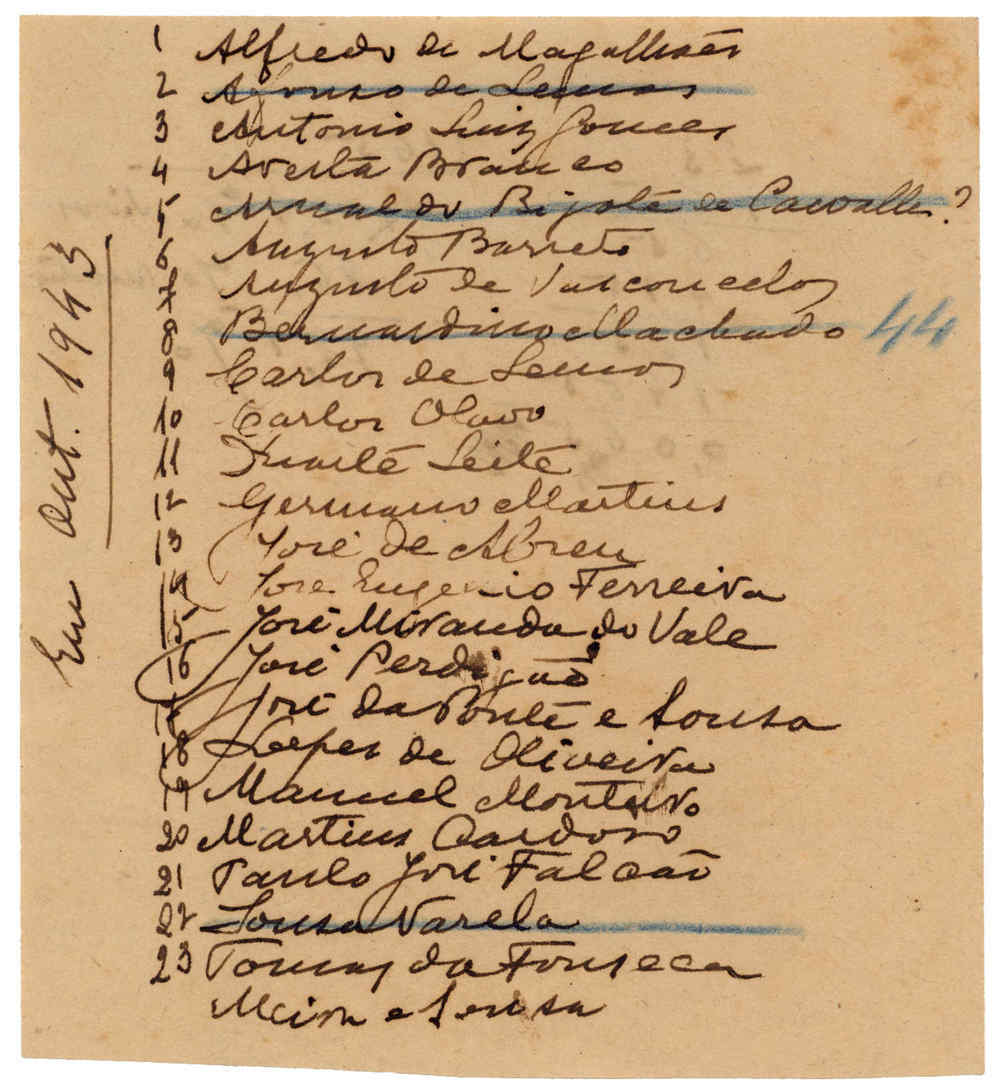 Em Out. 1943
1 Alfredo de Magalhães
2 Afonso de Lemos
3 Antonio Luiz Gomes
4 Aresta Branco
5 Arnaldo Bigote de Carvalho?
6 Augusto Barreto
7 Augusto de Vasconcelos
8 Bernardino Machado 44
9 Carlos de Lemos
10 Carlos Olavo
11 Duarte Leite
12 Germano Martins
13 José de Abreu
14 José Eugenio Ferreira
15 José Miranda do Vale
16 José Perdigão
17 José da Ponte e Sousa
18 Lopes de Oliveira
19 Manuel Monteiro
20 Martins Cardoso
21 Paulo José Falcão
22 Sousa Varela
23 Tomaz da Fonseca
Meira e Sousa